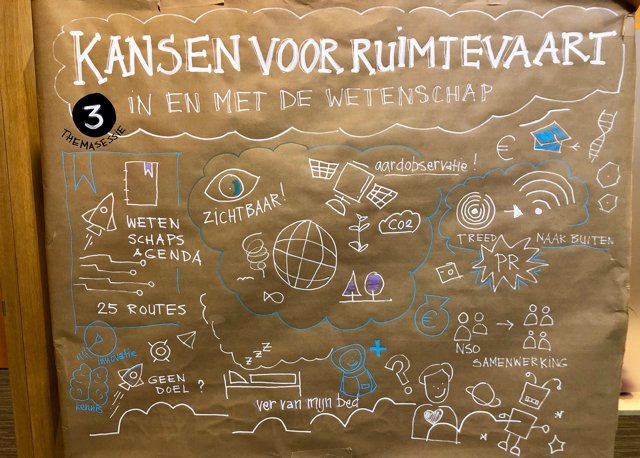 KANSEN VOOR RUIMTEVAART
IN EN MET DE WETENSCHAP
3
THEMASESSIE
€
aardobservatie!
ZICHTBAAR!
CO2
WETEN
SCHAPS
AGENDA
25 ROUTES
TREED NAAR BUITEN
PR
€
NSO
SAMENWERKING
innovatie
kennis
GEEN
DOEL ?
z z z
ver van mijn bed
+
?